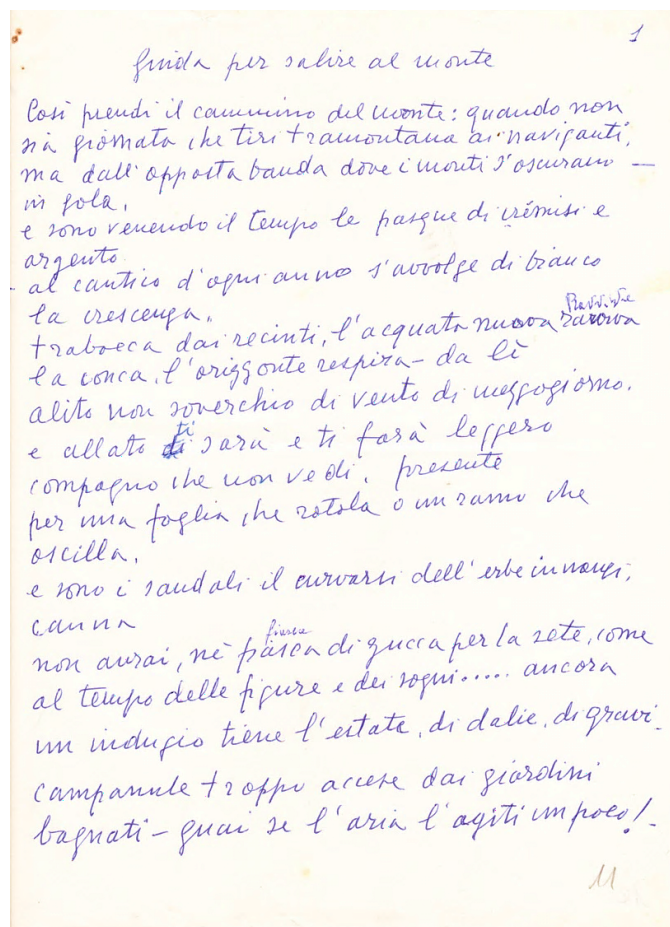 1
Guida per salire al monte
Così prendi il cammino del monte: quando non
sia giornata che tiri tramontana ai naviganti,
ma dall'opposta banda dove i monti s'oscurano —
in gola,
e sono venendo il tempo le pasque di crémisi e
argento.
al cantico d'ogni anno s'avvolge di bianco
la crescenza,
trabocca dai recinti, l'acquata nuova
la conca, l'orizzonte respira – da lì
alito non soverchio di vento di mezzogiorno.
e allato ti sarà e ti farà leggero
compagno che non vedi, presente
per una foglia che rotola o un ramo che
oscilla,
e sono i sandali il curvarsi dell'erbe innanzi,
canna
fiasca
non avrai, né fiasca di zucca per la sete, come
al tempo delle figure e dei sogni..... ancora
un indugio tiene l'estate, di dalie, di gravi
campanule troppo accese dai giardini
bagnati – guai se l'aria l'agiti un poco!
11